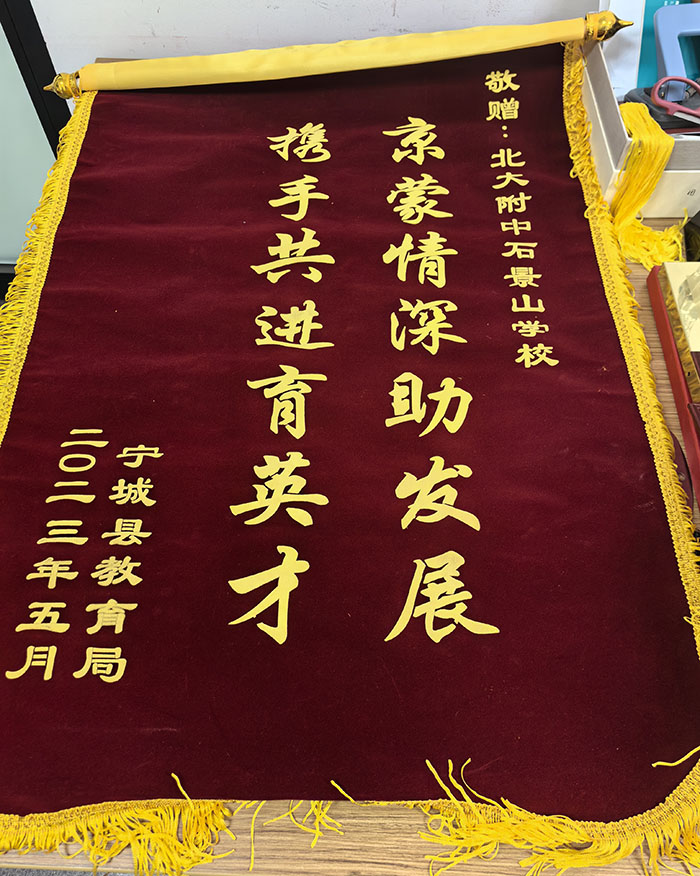 敬赠：北大附中石景山学校
京蒙情深助发展
携手共进育英才
宁城县教育局
二〇二三年五月